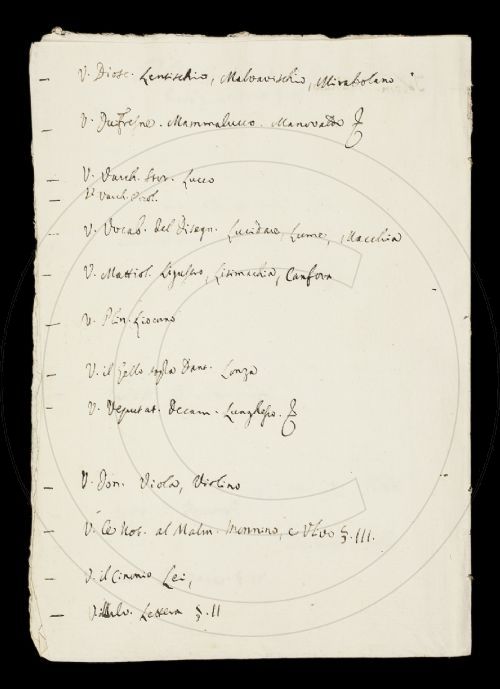 V. Diosc. Lentischio, Malvavischio, Mirabolano
V. Dufresne. Mammalucco. Manovaldo
V. Varch. Stor. Lucco
V. Varch. Ercol.
V. Vocab. del Disegn. Lucidare, Lume, Macchia
V. Mattiol. Ligustro, Lisimachia, Canfora
V. Plin. Liocorno
V. il Gello sopra Dant. Lonza
V. Deputat. Decam. Lunghesso.
V. Don. Viola, Violino
V. Le Not. al Malm. Mennino, e Uovo §. III.
V. il Cinonio Lei,
V. Lettera §. II